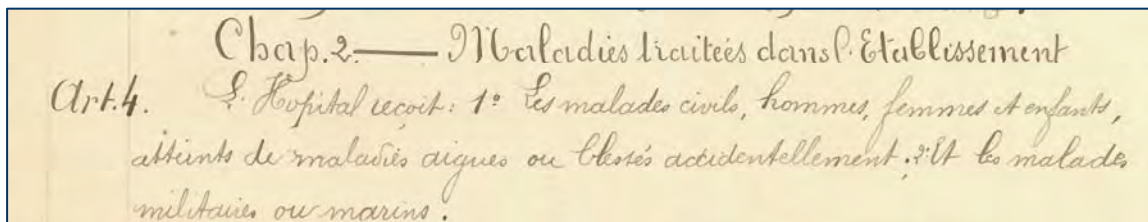 Chap. 2. — Maladies traitées dans l'Etablissement
Art. 4. L'Hopital reçoit : 1º Les malades civils, hommes, femmes et enfants,
atteints de maladies aigues ou blessés accidentellement. 2º Et les malades
militaires ou marins.